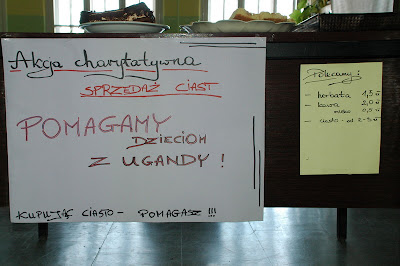 Akcja charytatywna
SPRZEDAŻ CIAST
POMAGAMY
DZIECIOM
Z UGANDY !
KUPUJĄC CIASTO - POMAGASZ !!!
Polecamy:
- herbata 1,5 zł
- kawa 2,0 zł
mleko 0,5 zł
- ciasto - od 2-3 zł